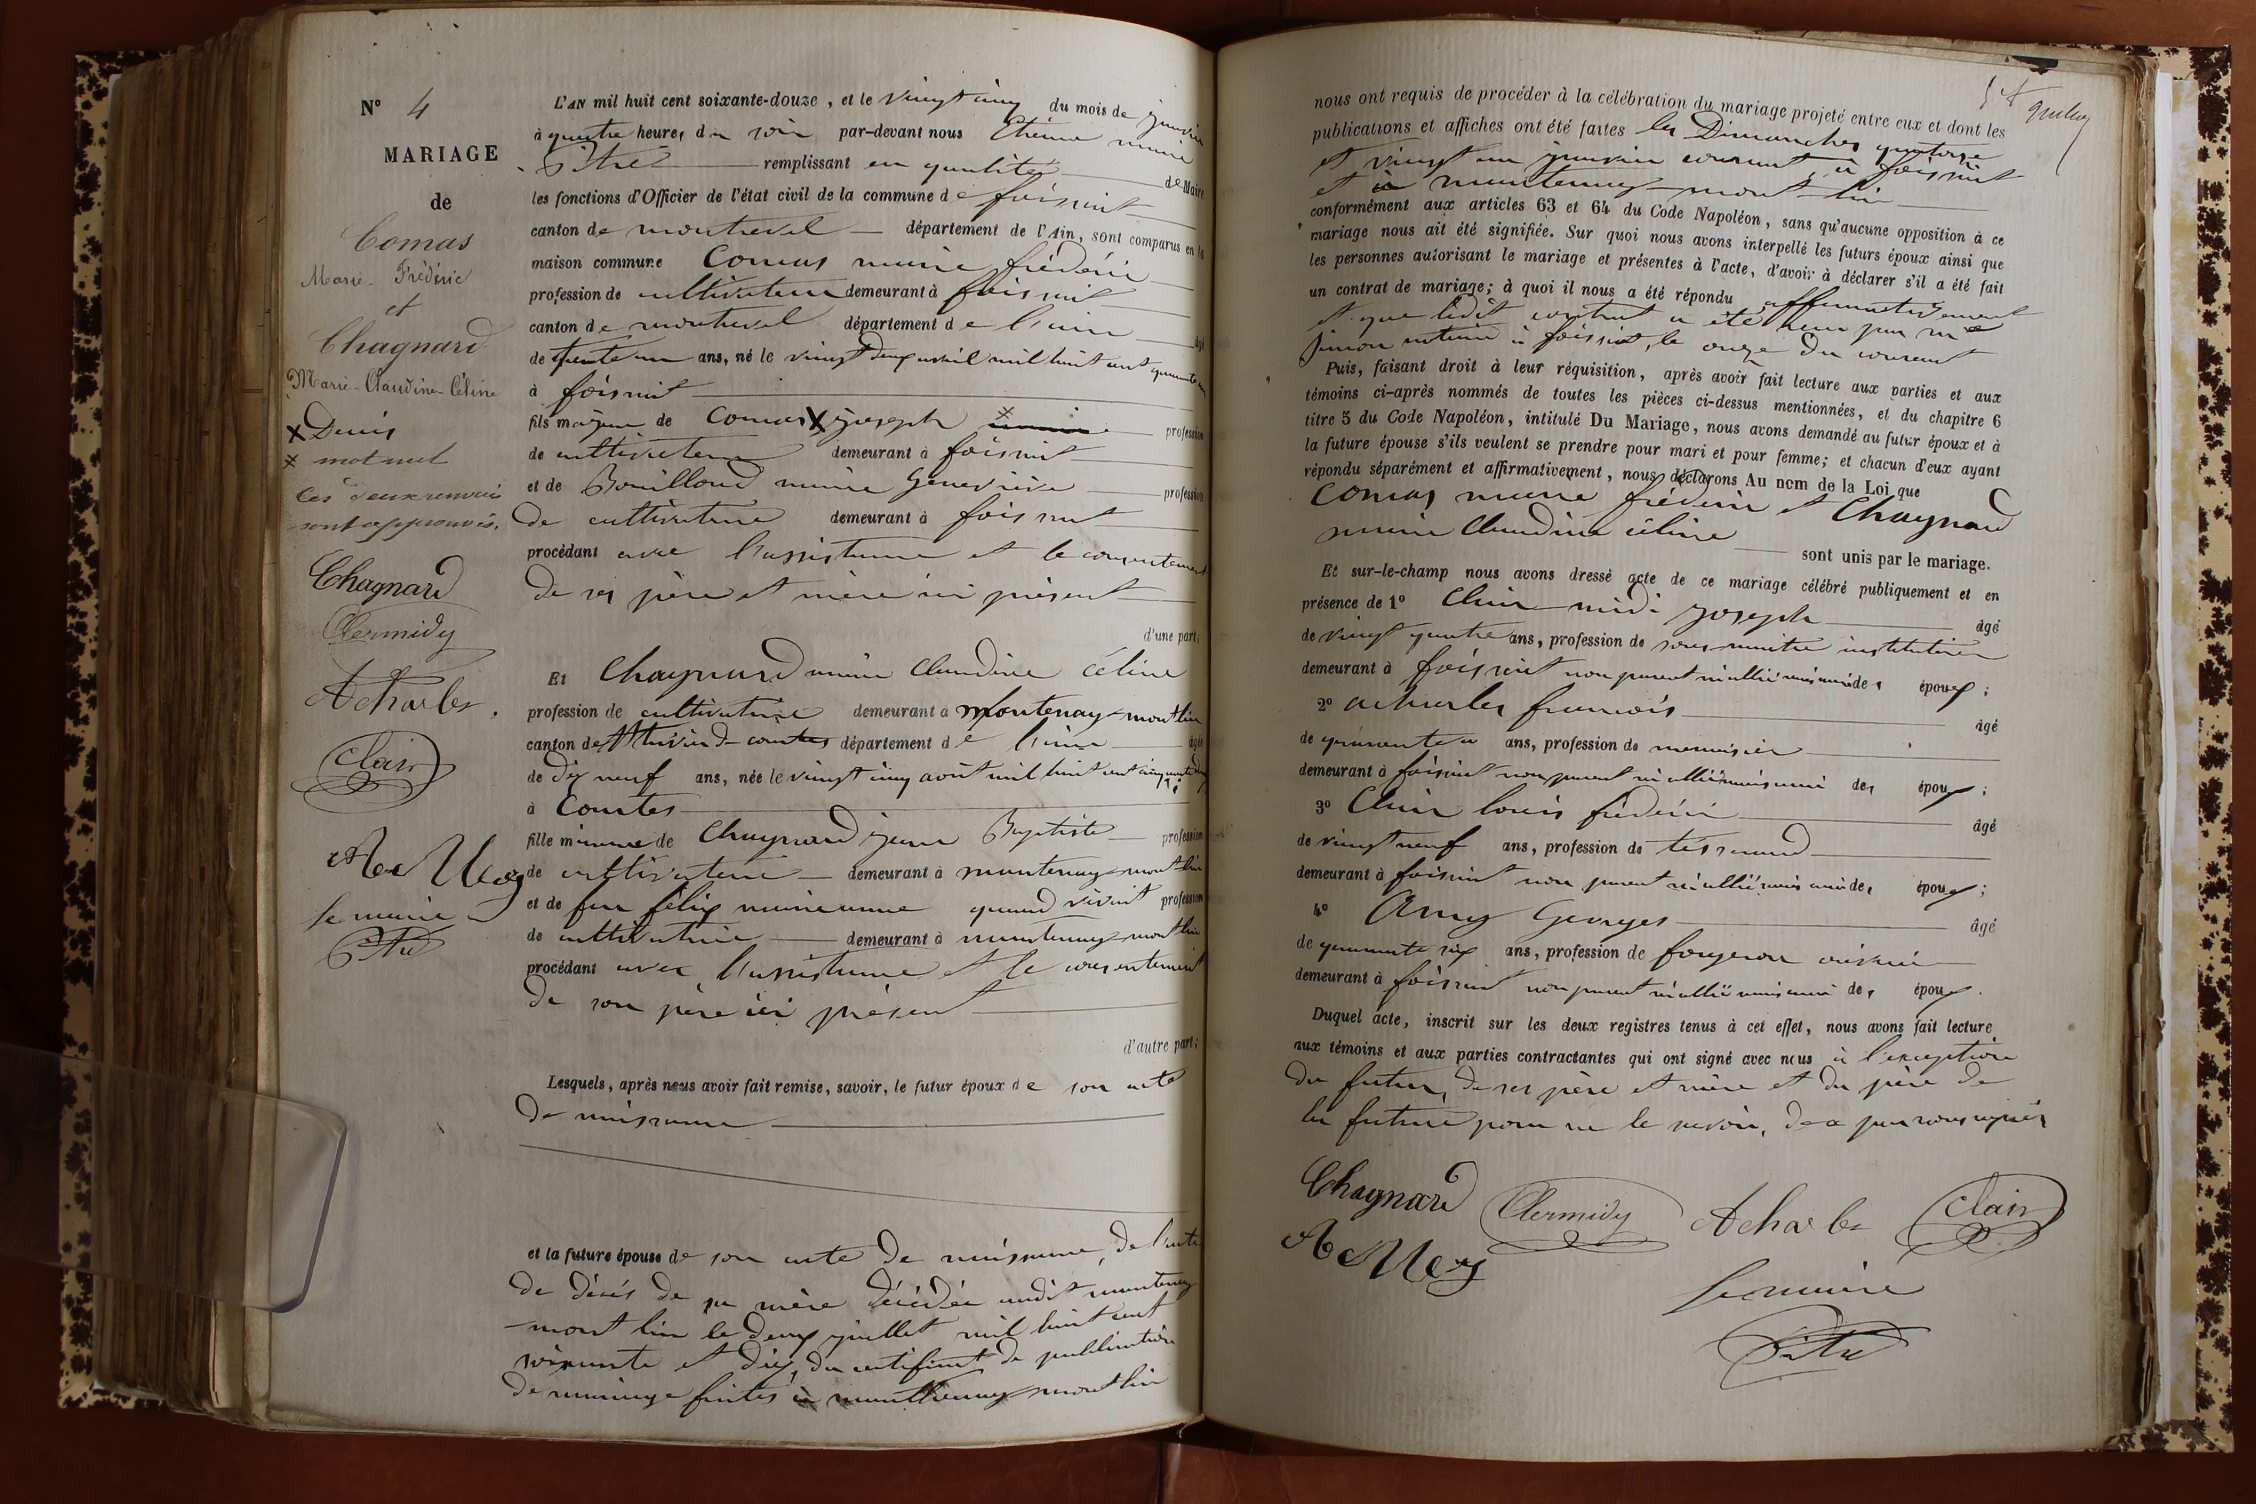 N° 4
MARIAGE
de
Comas
Marie-Frédéric
et
Chagnard
Marie-Claudine-Céline
X Denis
X mot nul
Ces deux renvois
sont approuvés.
Chagnard
Clermidy
Acharles
Clair
Le maire
Pitre
L'AN mil huit cent soixante-douze, et le vingt cinq du mois de janvier
à quatre heures du soir par-devant nous Etienne marie
Pitre remplissant en qualité de Maire
les fonctions d'Officier de l'état civil de la commune de foissiat
canton de montrevel département de l'Ain, sont comparus en la
maison commune Comas marie frédéric
profession de cultivateur demeurant à foissiat
canton de montrevel département de l'ain âgé
de trente un ans, né le vingt deux avril mil huit cent quarante un
à foissiat
fils majeur de Comas X joseph X profession
de cultivateur demeurant à foissiat
et de Bouilloud marie Geneviève profession
de cultivatrice demeurant à foissiat
procédant avec l'assistance et le consentement
de ses père et mère ici présent
d'une part;
Et Chagnard marie Claudine Céline
profession de cultivatrice demeurant à Montenay-montlin
canton de St trivier-de-courtes département de l'ain âgée
de dix neuf ans, née le vingt cinq août mil huit cent cinquante deux
à Courtes
fille mineure de Chagnard jean Baptiste profession
de cultivateur demeurant à mantenay-montlin
et de feu félix marie anne quand vivait profession
de cultivatrice demeurant à mantenay-montlin
procédant avec l'assistance et le consentement
de son père ici présent
d'autre part;
Lesquels, après nous avoir fait remise, savoir, le futur époux de son acte
de naissance
et la future épouse de son acte de naissance, de l'acte
de décès de sa mère décédée audit mantenay
-montlin le deux juillet mil huit cent
soixante et dix, du certificat de publication
de mariage faites à manthenay-montlin
nous ont requis de procéder à la célébration du mariage projeté entre eux et dont les
publications et affiches ont été faites les Dimanches quatorze
et vingt un janvier courant, à foissiat
et à mantenay-montlin
conformément aux articles 63 et 64 du Code Napoléon, sans qu'aucune opposition à ce
mariage nous ait été signifiée. Sur quoi nous avons interpellé les futurs époux ainsi que
les personnes autorisant le mariage et présentes à l'acte, d'avoir à déclarer s'il a été fait
un contrat de mariage; à quoi il nous a été répondu affirmativement
et que ledit contrat a été reçu par me
simon notaire à foissiat, le onze du courant
Puis, faisant droit à leur réquisition, après avoir fait lecture aux parties et aux
témoins ci-après nommés de toutes les pièces ci-dessus mentionnées, et du chapitre 6
titre 5 du Code Napoléon, intitulé Du Mariage, nous avons demandé au futur époux et à
la future épouse s'ils veulent se prendre pour mari et pour femme; et chacun d'eux ayant
répondu séparément et affirmativement, nous déclarons Au nom de la Loi que
Comas marie frédéric et Chagnard
marie Claudine céline sont unis par le mariage.
Et sur-le-champ nous avons dressé acte de ce mariage célébré publiquement et en
présence de 1° joseph âgé
de vingt quatre ans, profession de sous maitre instituteur
demeurant à foissiat non parent ni allié mais ami des époux;
2° acharles francois âgé
de quarante ans, profession de menuisier
demeurant à foissiat non parent ni allié mais ami des époux;
3° Clair louis frédéric âgé
de vingt neuf ans, profession de tisserand
demeurant à foissiat non parent ni allié mais ami des époux;
4° Georges âgé
de quarante six ans, profession de forgeron
demeurant à foissiat non parent ni allié mais ami des époux.
Duquel acte, inscrit sur les deux registres tenus à cet effet, nous avons fait lecture
aux témoins et aux parties contractantes qui ont signé avec nous à l'exception
du futur, de ses père et mère et du père de
la future pour ne le savoir, de ce
Chagnard Clermidy Acharles Clair
Le maire
Pitre